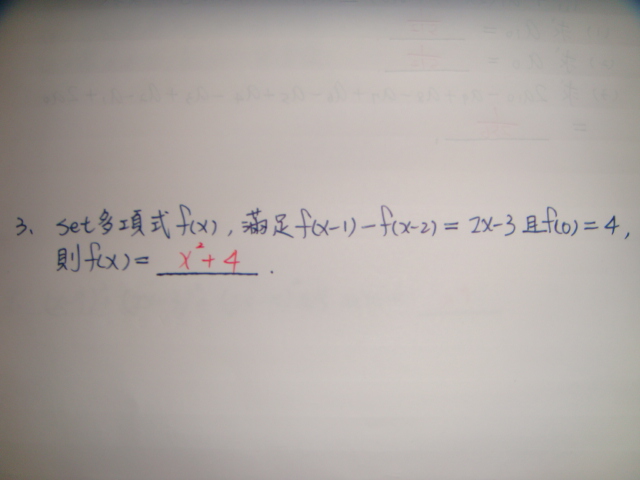 3、set多項式f(x),滿足f(x-1)-f(x-2)=2x-3且f(0)=4,
則f(x)= x²+4 .